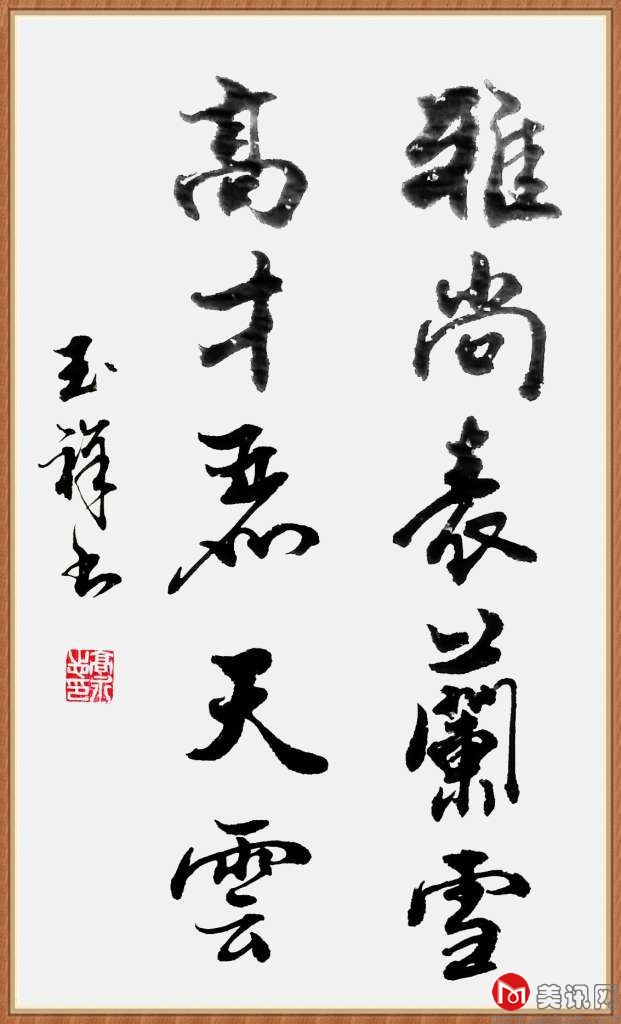 雅尚表蘭雪
高才天雲
玉祥书
美讯网